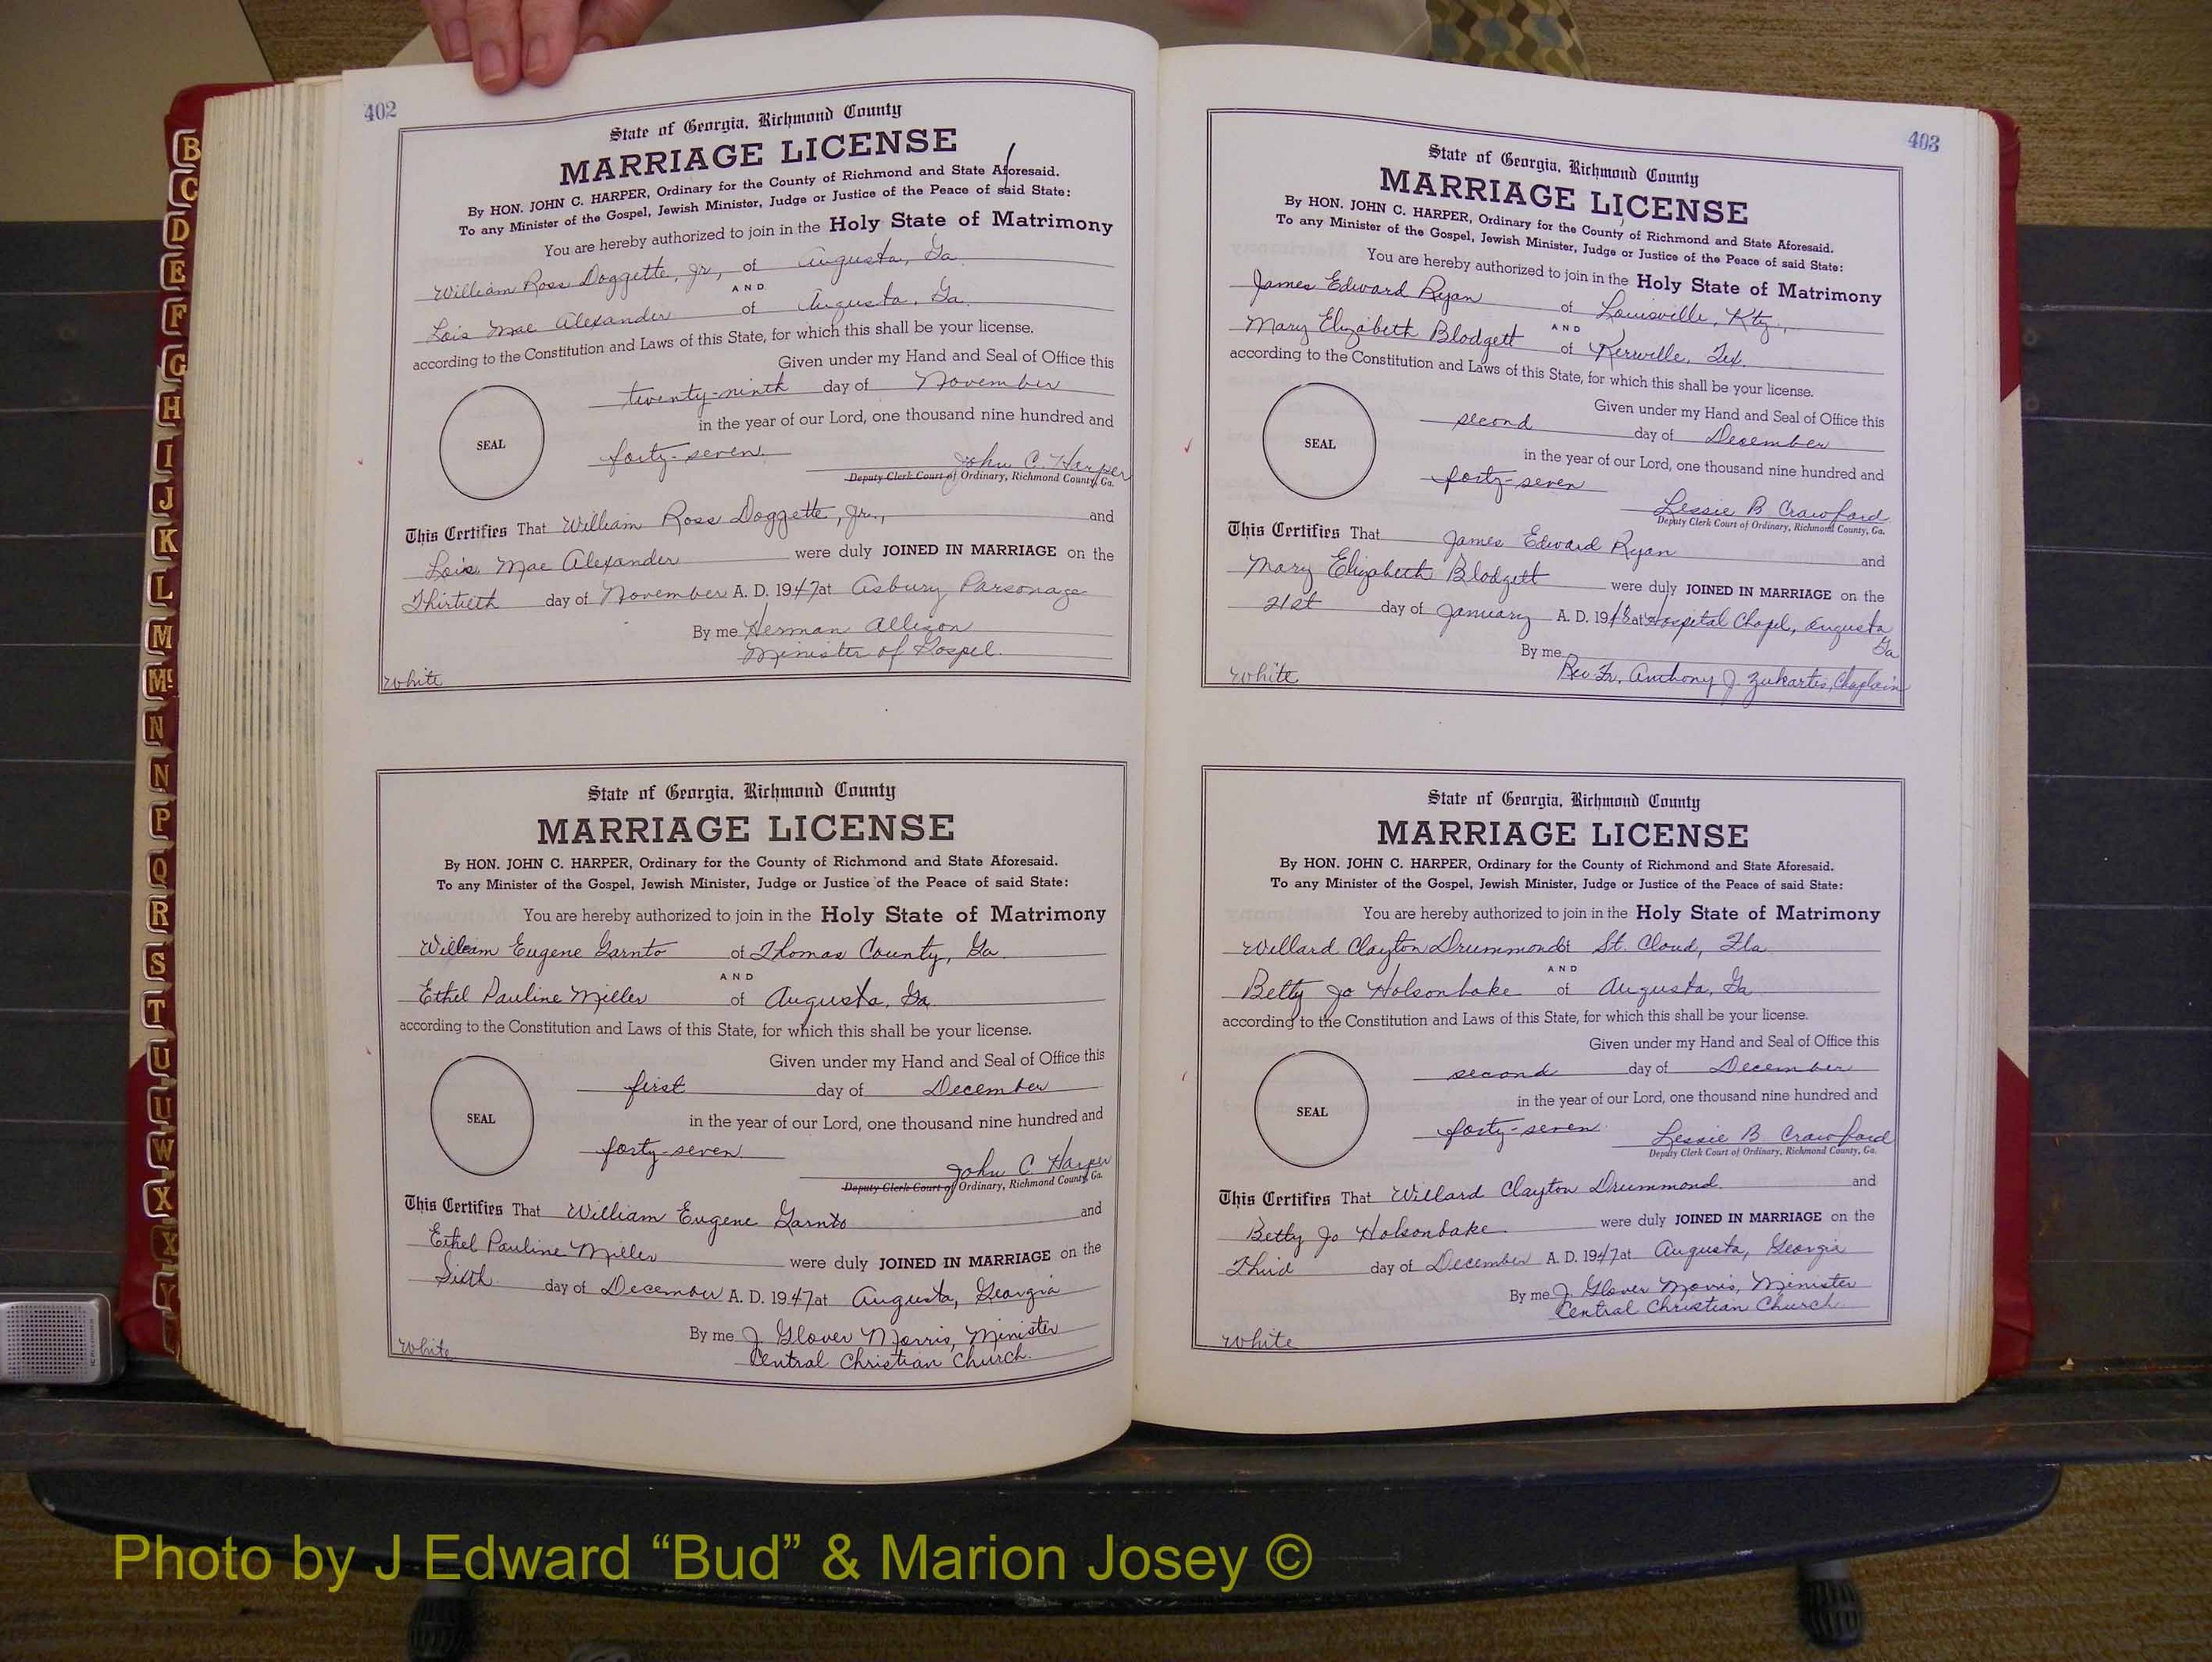 402
State of Georgia, Richmond County
MARRIAGE LICENSE
By HON. JOHN C. HARPER, Ordinary for the County of Richmond and State Aforesaid.
To any Minister of the Gospel, Jewish Minister, Judge or Justice of the Peace of said State:
You are hereby authorized to join in the Holy State of Matrimony
William Ross Doggette, Jr., of Augusta, Ga.
AND
Lois Mae Alexander of Augusta, Ga.
according to the Constitution and Laws of this State, for which this shall be your license.
Given under my Hand and Seal of Office this
twenty-ninth day of November
in the year of our Lord, one thousand nine hundred and
SEAL
forty-seven. John C. Harper
Deputy Clerk Court of Ordinary, Richmond County, Ga.
This Certifies That William Ross Doggette, Jr., and
Lois Mae Alexander were duly JOINED IN MARRIAGE on the
Thirtieth day of November A. D. 1947 at Asbury Parsonage
By me Herman Allison
Minister of Gospel.
White
State of Georgia, Richmond County
MARRIAGE LICENSE
By HON. JOHN C. HARPER, Ordinary for the County of Richmond and State Aforesaid.
To any Minister of the Gospel, Jewish Minister, Judge or Justice of the Peace of said State:
You are hereby authorized to join in the Holy State of Matrimony
William Eugene Garnto of Thomas County, Ga.
AND
Ethel Pauline Miller of Augusta, Ga.
according to the Constitution and Laws of this State, for which this shall be your license.
Given under my Hand and Seal of Office this
first day of December
in the year of our Lord, one thousand nine hundred and
SEAL
forty-seven. John C. Harper
Deputy Clerk Court of Ordinary, Richmond County, Ga.
This Certifies That William Eugene Garnto and
Ethel Pauline Miller were duly JOINED IN MARRIAGE on the
Sixth day of December A. D. 1947 at Augusta, Georgia
By me J. Glover Morris, Minister
Central Christian Church.
White
403
State of Georgia, Richmond County
MARRIAGE LICENSE
By HON. JOHN C. HARPER, Ordinary for the County of Richmond and State Aforesaid.
To any Minister of the Gospel, Jewish Minister, Judge or Justice of the Peace of said State:
You are hereby authorized to join in the Holy State of Matrimony
James Edward Ryan of Louisville, Kty.,
AND
Mary Elizabeth Blodgett of Kerville, Tex.
according to the Constitution and Laws of this State, for which this shall be your license.
Given under my Hand and Seal of Office this
second day of December
in the year of our Lord, one thousand nine hundred and
SEAL
forty-seven
Lessie B. Crawford
Deputy Clerk Court of Ordinary, Richmond County, Ga.
This Certifies That James Edward Ryan and
Mary Elizabeth Blodgett were duly JOINED IN MARRIAGE on the
21st day of January A. D. 1948 at Hospital Chapel, Augusta
Ga
By me
Rev. Fr. Anthony J. Zukartis, Chaplain
White
State of Georgia, Richmond County
MARRIAGE LICENSE
By HON. JOHN C. HARPER, Ordinary for the County of Richmond and State Aforesaid.
To any Minister of the Gospel, Jewish Minister, Judge or Justice of the Peace of said State:
You are hereby authorized to join in the Holy State of Matrimony
Willard Clayton Drummond of St. Cloud, Fla.
AND
Betty Jo Holsonbake of Augusta, Ga
according to the Constitution and Laws of this State, for which this shall be your license.
Given under my Hand and Seal of Office this
second day of December
in the year of our Lord, one thousand nine hundred and
SEAL
forty-seven. Lessie B. Crawford
Deputy Clerk Court of Ordinary, Richmond County, Ga.
This Certifies That Willard Clayton Drummond and
Betty Jo Holsonbake were duly JOINED IN MARRIAGE on the
Third day of December A. D. 1947 at Augusta, Georgia
By me J. Glover Morris, Minister
Central Christian Church.
White
B
C
D
E
F
G
H
I
J
K
L
M
Mc
N
N
P
Q
R
S
T
U
U
W
X
X
Y
Photo by J Edward “Bud” & Marion Josey ©